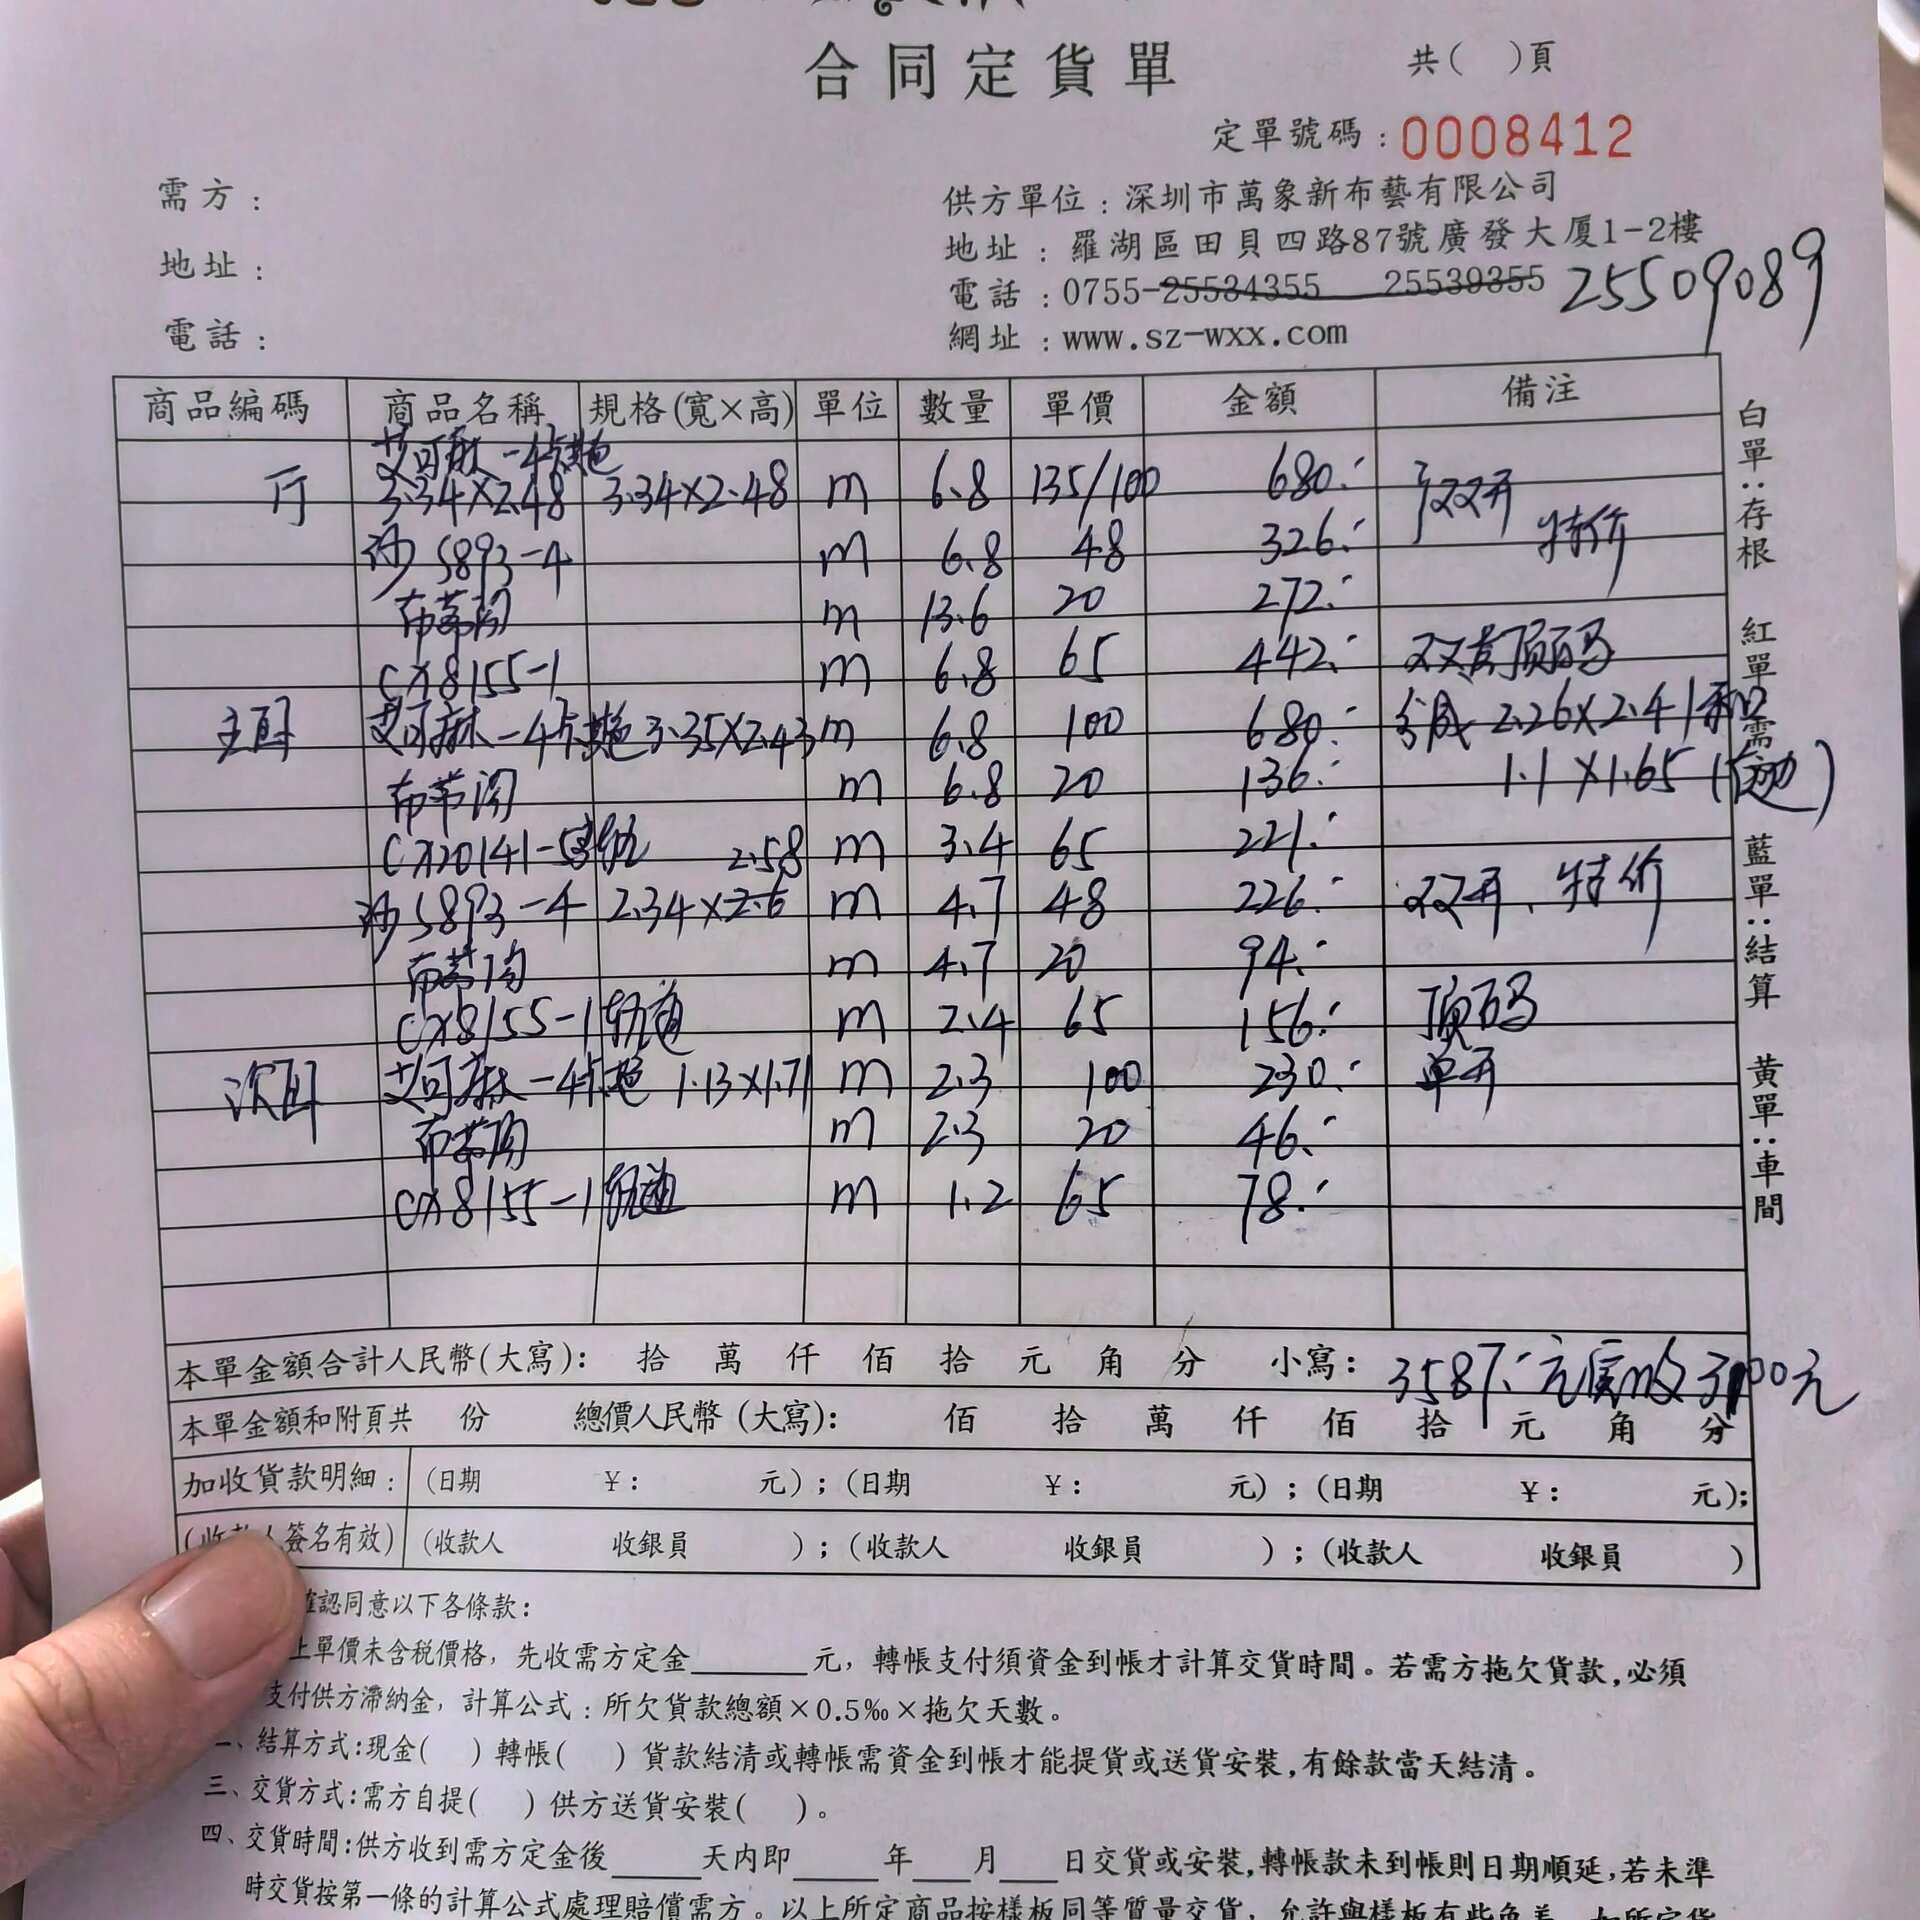 合同定貨單
共( )頁
定單號碼：0008412
需方：
供方單位：深圳市萬象新布藝有限公司
地址：
地址：羅湖區田貝四路87號廣發大厦1-2樓
電話：
電話：0755-25534355 25539355 25509089
網址：www.sz-wxx.com
商品編碼 商品名稱 規格(寬×高) 單位 數量 單價 金額 備注
艾可麻-4
厅 3.34×2.48 3.34×2.48 m 6.8 135/100 680.- 双开
沙5893-4 m 6.8 48 326.- 特价
布 m 13.6 20 272.-
CX8155-1 m 6.8 65 442.- 双 顶码
主卧 艾可麻-4 3.35×2.43 m 6.8 100 680.- 分成 2.26×2.41和
布 m 6.8 20 136.- 1.1×1.65
CX20141-5 2.58 m 3.4 65 221.-
沙5893-4 2.34×2.6 m 4.7 48 226.- 双开、特价
布 m 4.7 20 94.-
CX8155-1 轨道 m 2.4 65 156.- 顶码
次卧 艾可麻-4 1.13×1.71 m 2.3 100 230.- 单开
布 m 2.3 20 46.-
CX8155-1 轨道 m 1.2 65 78.-
白單：存根 紅單 需 藍單：結算 黄單：車間
本單金額合計人民幣(大寫)： 拾 萬 仟 佰 拾 元 角 分 小寫：3587.-元 实收 元
本單金額和附頁共 份 總價人民幣(大寫)： 佰 拾 萬 仟 佰 拾 元 角 分
加收貨款明細： (日期 ¥： 元)；(日期 ¥： 元)；(日期 ¥： 元)；
(收款人簽名有效) (收款人 收銀員 )；(收款人 收銀員 )；(收款人 收銀員 )
確認同意以下各條款：
上單價未含税價格，先收需方定金______元，轉帳支付須資金到帳才計算交貨時間。若需方拖欠貨款,必須
支付供方滯納金，計算公式：所欠貨款總額×0.5‰×拖欠天數。
二、結算方式:現金( )轉帳( )貨款結清或轉帳需資金到帳才能提貨或送貨安裝,有餘款當天結清。
三、交貨方式:需方自提( )供方送貨安裝( )。
四、交貨時間:供方收到需方定金後____天内即____年__月__日交貨或安裝,轉帳款未到帳則日期順延,若未準
時交貨按第一條的計算公式處理賠償需方。以上所定商品按樣板同等質量交貨，允許與樣板有些色差，如所定貨